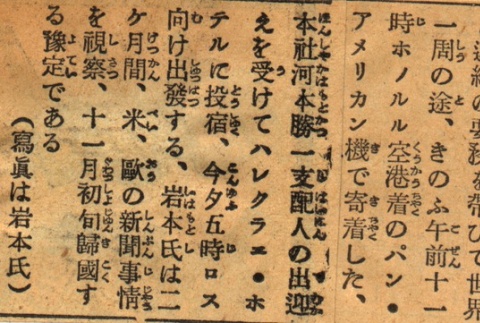 連絡の要務を帶びて世界
一周の途、きのふ午前十一
時ホノルル空港着のパン・
アメリカン機で寄着した、
本社河本勝一支配人の出迎
えを受けてハレクラエ・ホ
テルに投宿、今夕五時ロス
向け出發する、岩本氏は二
ケ月間、米、歐の新聞事情
を視察、十一月初旬歸國す
る豫定である
(寫眞は岩本氏)